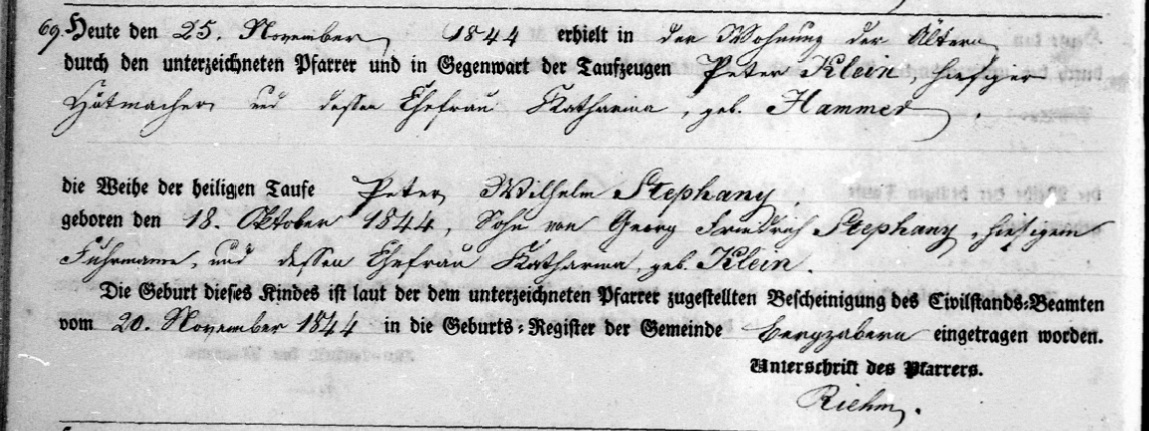 69. Heute den 25. November 1844 erhielt in der Wohnung der Ältern
durch den unterzeichneten Pfarrer und in Gegenwart der Taufzeugen Peter Klein, hiesiger
Hutmacher und dessen Ehefrau Katharina, geb. Hammer.
die Weihe der heiligen Taufe Peter Wilhelm Stephany,
geboren den 18. Oktober 1844, Sohn von Georg Friedrich Stephany, hiesigem
Fuhrmann, und dessen Ehefrau Katharina, geb. Klein.
Die Geburt dieses Kindes ist laut der dem unterzeichneten Pfarrer zugestellten Bescheinigung des Civilstands-Beamten
vom 20. November 1844 in die Geburts-Register der Gemeinde Bergzabern eingetragen worden.
Unterschrift des Pfarrers.
Riehm.